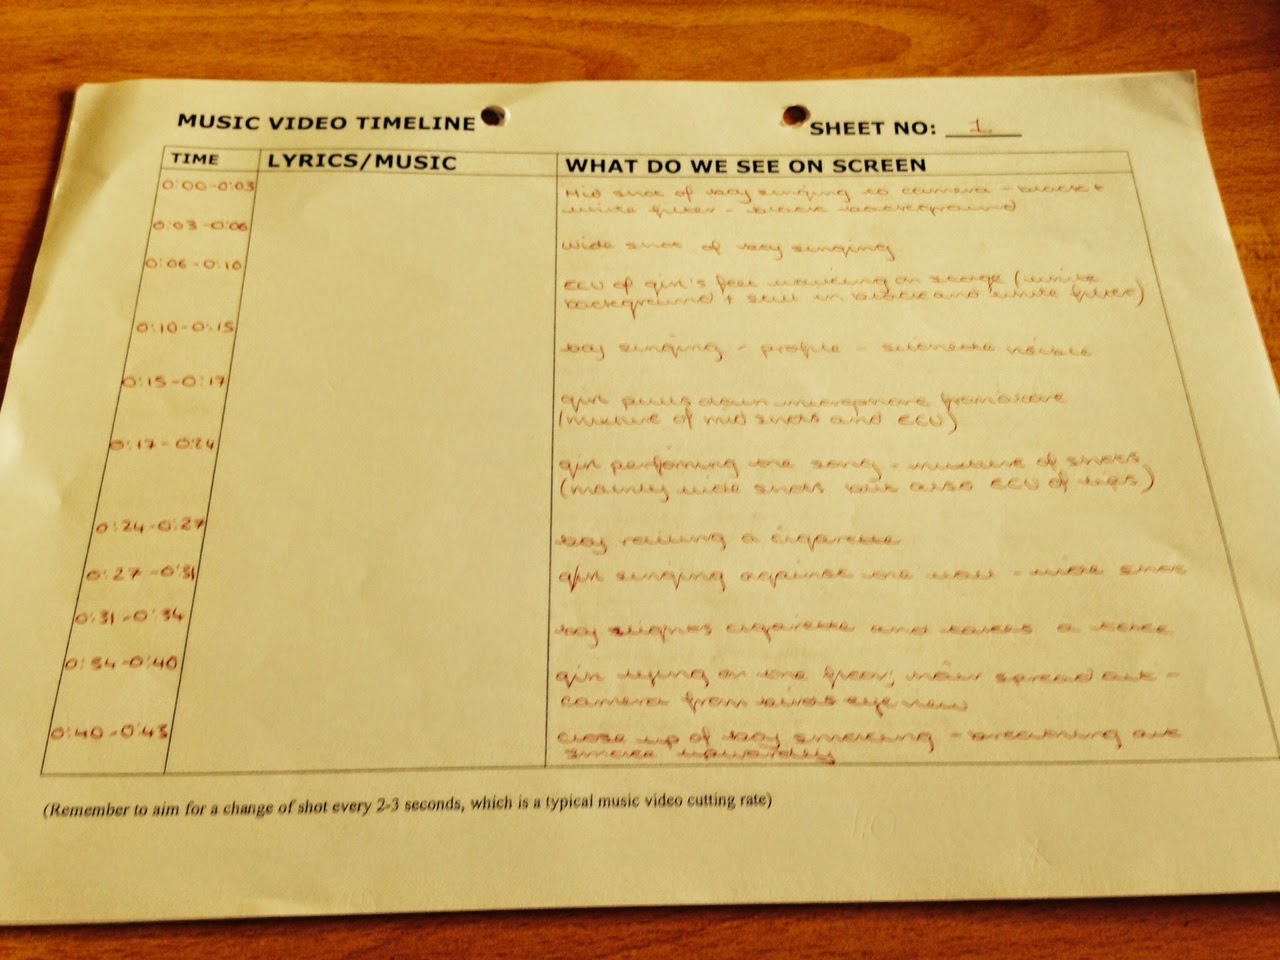 MUSIC VIDEO TIMELINE
SHEET NO: 1
TIME LYRICS/MUSIC WHAT DO WE SEE ON SCREEN
0:00-0:03 Mid shot of boy singing to camera - black +
white filter - black background
0:03-0:06 wide shot of boy singing
0:06-0:10 ECU of girl's feet walking on stage (white
background + still in black and white filter)
0:10-0:15 boy singing - profile - visible
0:15-0:17 girl pulls down microphone from above
(mixture of mid shots and ECU)
0:17-0:24 girl performing the song - mixture of shots
(mainly wide shots but also ECU of lips)
0:24-0:27 boy rolling a cigarette
0:27-0:31 girl singing against the wall - wide shot
0:31-0:34 boy lights cigarette and takes a toke
0:34-0:40 girl lying on the floor, hair spread out -
camera from birds eye view
0:40-0:43 close up of boy smoking - breathing out
smoke upwardly
(Remember to aim for a change of shot every 2-3 seconds, which is a typical music video cutting rate)